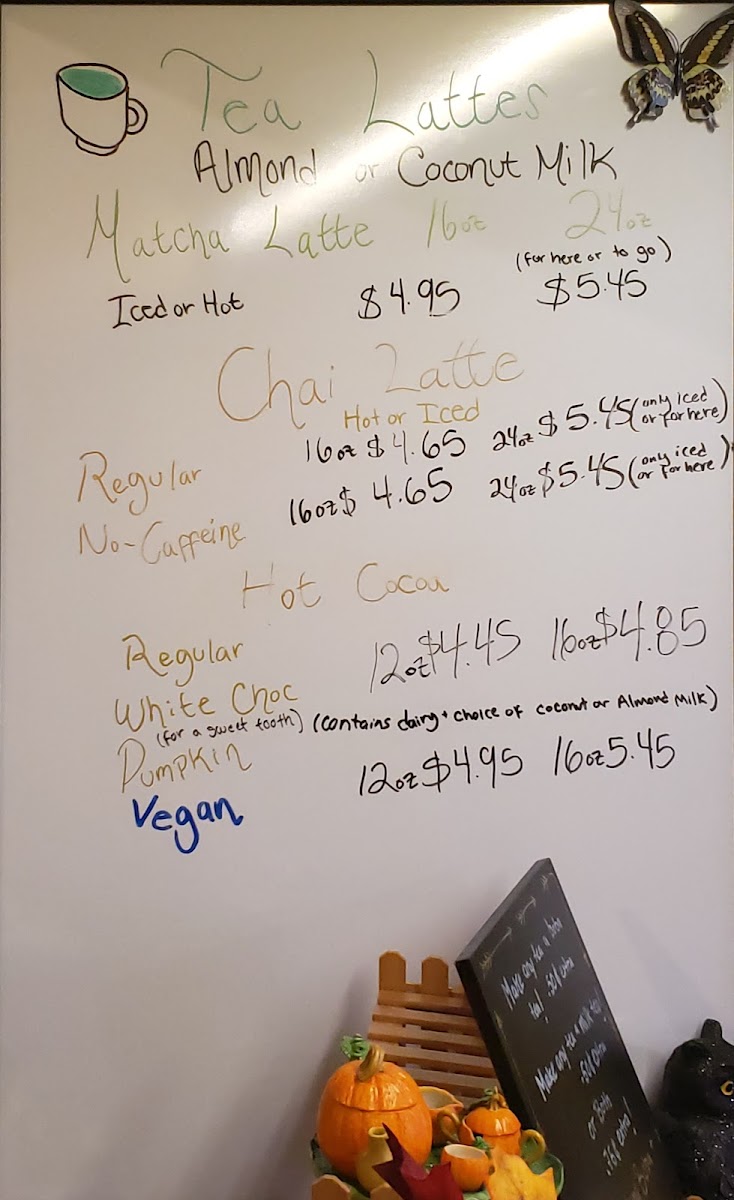 Tea Lattes
Almond or Coconut Milk
Matcha Latte 16oz 24oz
(for here or to go)
Iced or Hot $4.95 $5.45
Chai Latte
Hot or Iced
Regular 16oz $4.65 24oz $5.45 (only iced or for here)
No-Caffeine 16oz $4.65 24oz $5.45 (only iced or for here)
Hot Cocoa
Regular 12oz $4.45 16oz $4.85
White Choc
(for a sweet tooth) (contains dairy + choice of coconut or Almond Milk)
Pumpkin 12oz $4.95 16oz 5.45
Vegan
Make any tea a
tea! .50¢ extra
Make any tea a milk tea!
.50¢ extra
or Both
.75¢ extra!